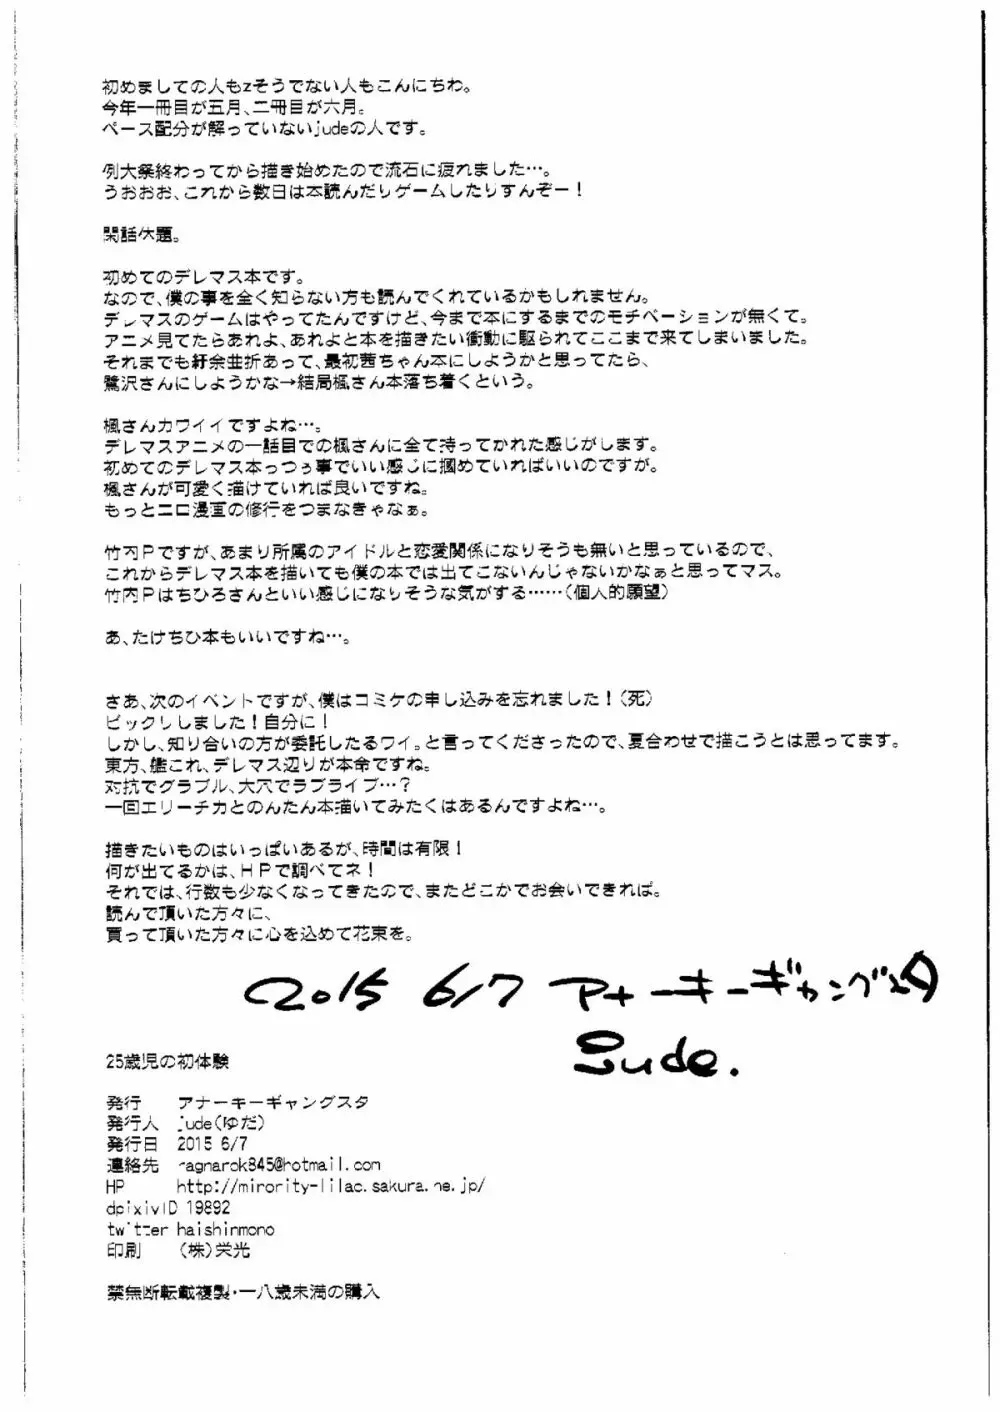 初めましての人もzそうでない人もこんにちわ。
今年一冊目が五月、二冊目が六月。
ペース配分が解っていないjudeの人です。
例大祭終わってから描き始めたので流石に疲れました…。
うおおお、これから数日は本読んだりゲームしたりすんぞー！
閑話休題。
初めてのデレマス本です。
なので、僕の事を全く知らない方も読んでくれているかもしれません。
デレマスのゲームはやってたんですけど、今まで本にするまでのモチベーションが無くて。
アニメ見てたらあれよ、あれよと本を描きたい衝動に駆られてここまで来てしまいました。
それまでも紆余曲折あって、最初茜ちゃん本にしようかと思ってたら、
鷺沢さんにしようかな→結局楓さん本落ち着くという。
楓さんカワイイですよね…。
デレマスアニメの一話目での楓さんに全て持ってかれた感じがします。
初めてのデレマス本っつぅ事でいい感じに掴めていればいいのですが。
楓さんが可愛く描けていれば良いですね。
もっとエロ漫画の修行をつまなきゃなぁ。
竹内Pですが、あまり所属のアイドルと恋愛関係になりそうも無いと思っているので、
これからデレマス本を描いても僕の本では出てこないんじゃないかなぁと思ってマス。
竹内Pはちひろさんといい感じになりそうな気がする……（個人的願望）
あ、たけちひ本もいいですね…。
さあ、次のイベントですが、僕はコミケの申し込みを忘れました！（死）
ビックリしました！自分に！
しかし、知り合いの方が委託したるワイ。と言ってくださったので、夏合わせで描こうとは思ってます。
東方、艦これ、デレマス辺りが本命ですね。
対抗でグラブル、大穴でラブライブ…？
一回エリーチカとのんたん本描いてみたくはあるんですよね…。
描きたいものはいっぱいあるが、時間は有限！
何が出てるかは、HPで調べてネ！
それでは、行数も少なくなってきたので、またどこかでお会いできれば。
読んで頂いた方々に、
買って頂いた方々に心を込めて花束を。
2015 6/7 アナーキーギャングスタ
jude.
25歳児の初体験
発行 アナーキーギャングスタ
発行人 jude（ゆだ）
発行日 2015 6/7
連絡先 ragnarok845@hotmail.com
HP http://minority-lilac.sakura.ne.jp/
dpixivID 19892
twitter haishinmono
印刷 （株）栄光
禁無断転載複製・一八歳未満の購入